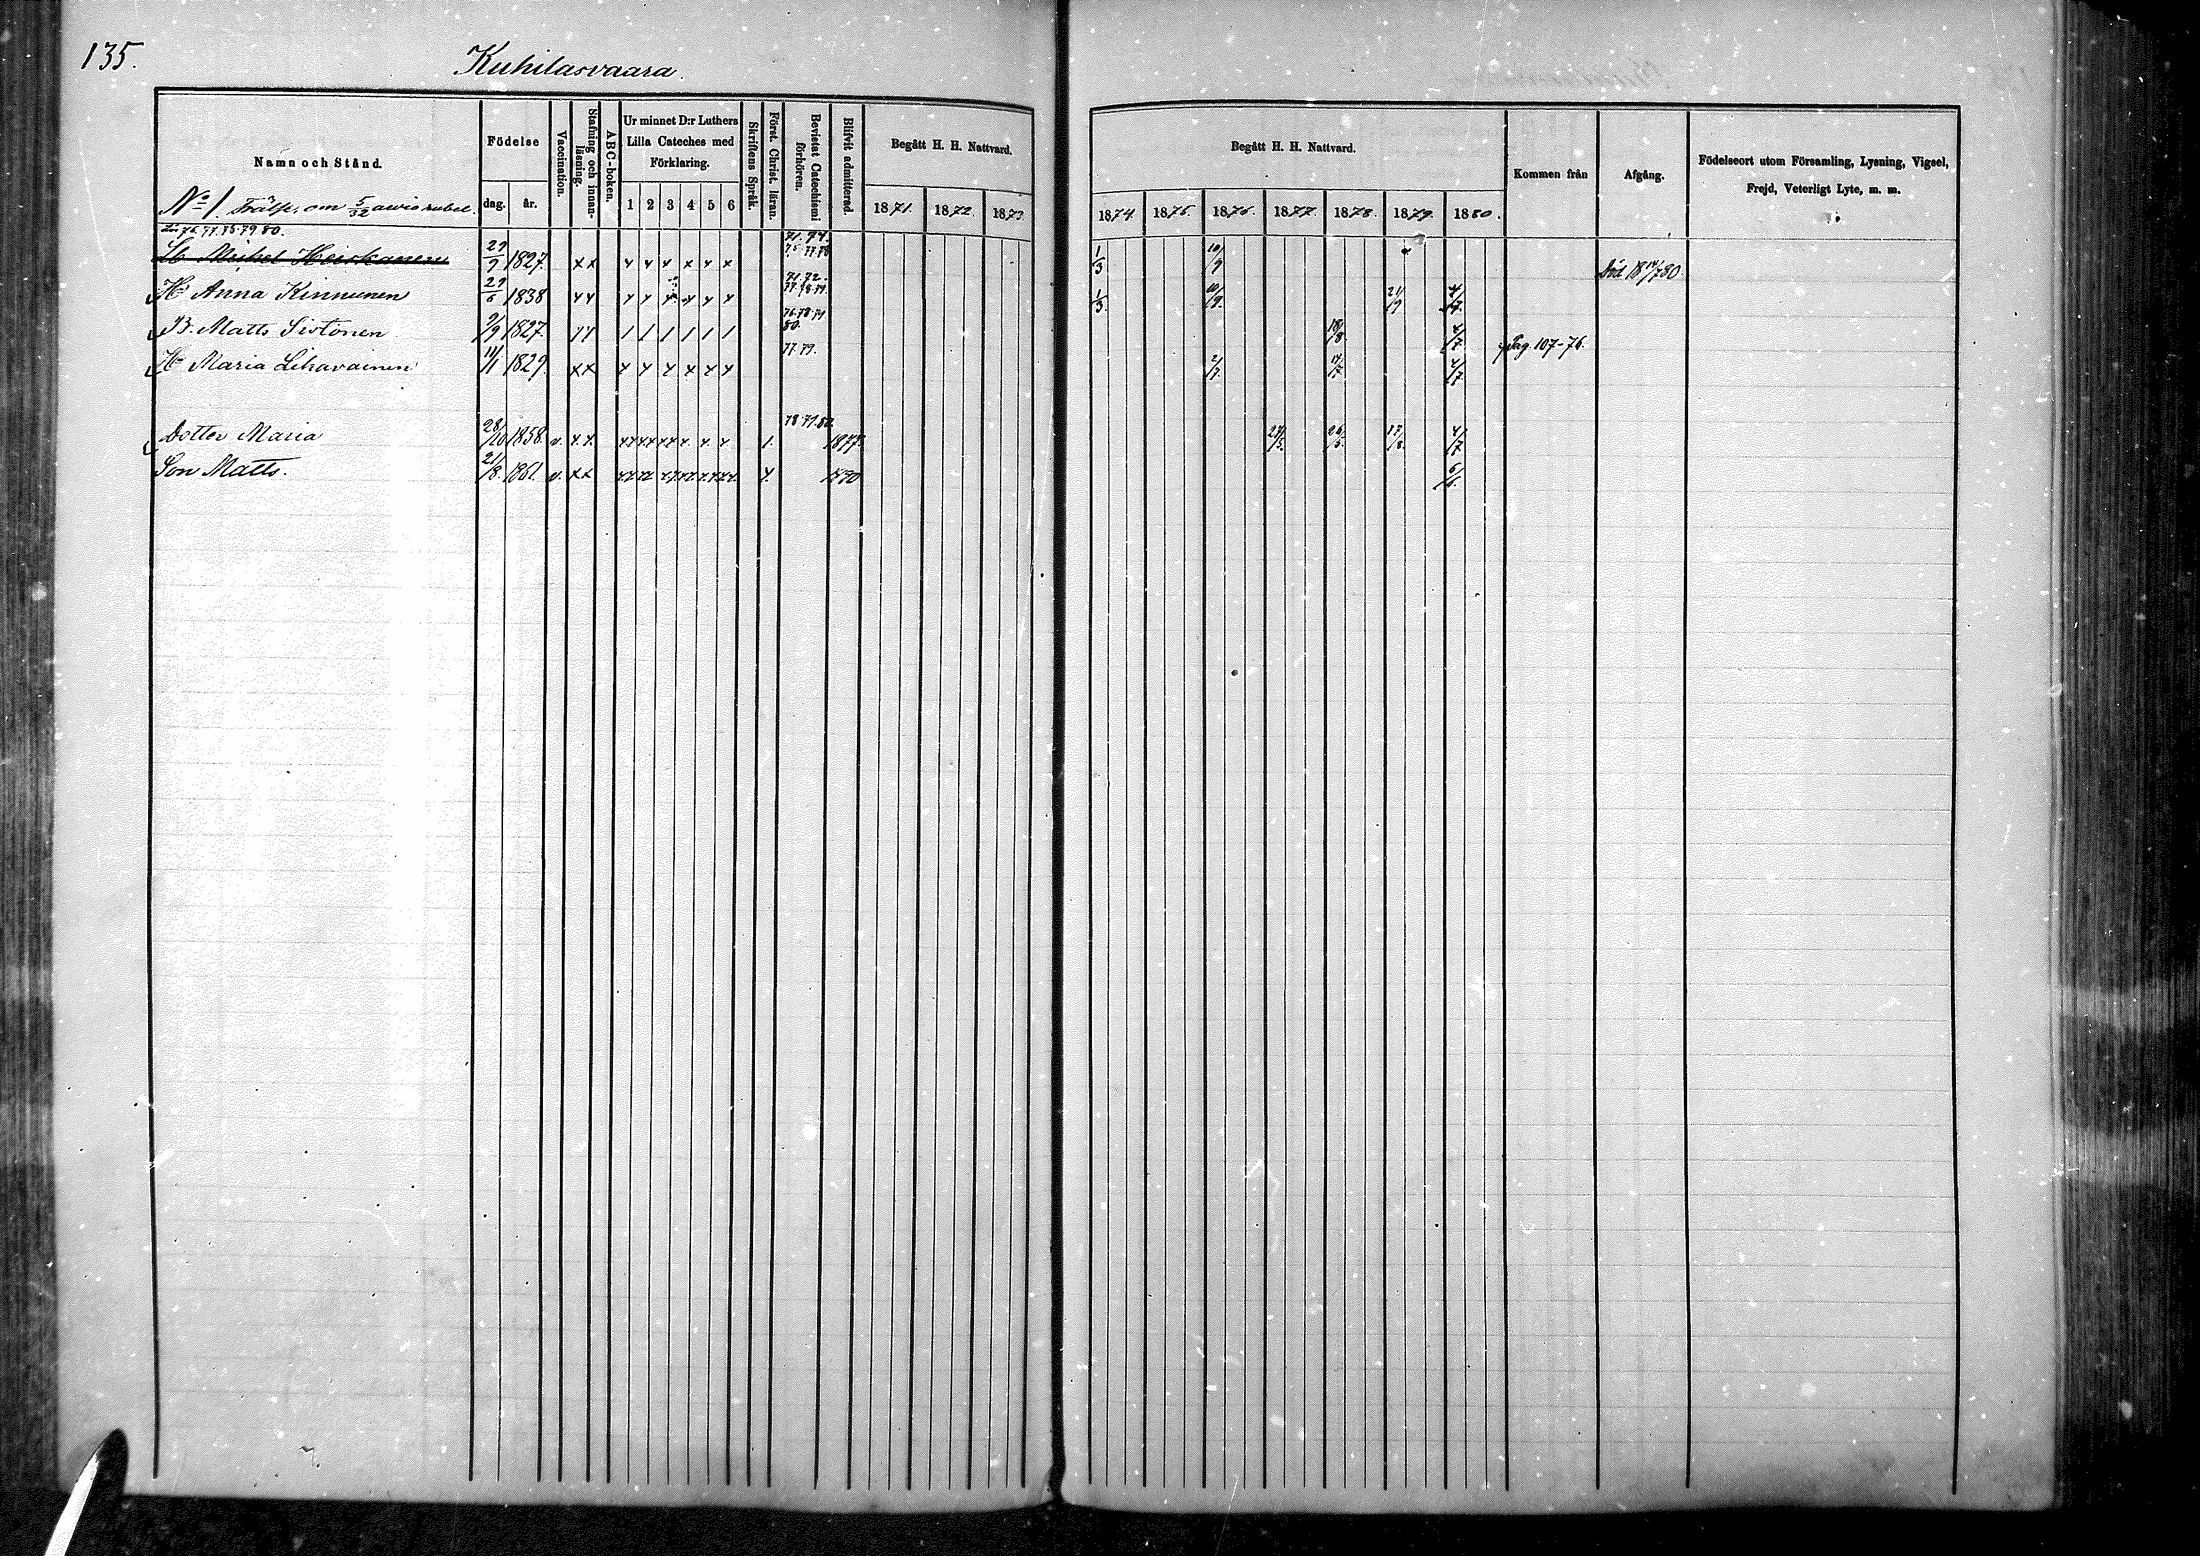 135.
Kuhilasvaara.
Namn och Stånd.
Födelse
dag. år.
Vaccination.
Stafning och innanläsning.
ABC-boken.
Ur minnet D:r Luthers Lilla Cateches med Förklaring.
1 2 3 4 5 6
Skriftens Språk.
Först. Christ. läran.
Bevistat Catechismi förhören.
Blifvit admitterad.
Begått H. H. Nattvard.
1871. 1872. 1873.
Begått H. H. Nattvard.
1874. 1875. 1876. 1877. 1878. 1879. 1880.
Kommen från
Afgång.
Födelseort utom Församling, Lysning, Vigsel, Frejd, Veterligt Lyte, m. m.
No 1. Frälse, om 5/32
Mikel Heiskanen 29/9 1827. x x x x x x x x 1/3 10/9 Död 80.
Hu Anna Kinnunen 29/6 1838 1/3. 10/9. 21/9 4/7.
B. Matts Sistonen 9/9 1827. 18/8. 4/7. Pag. 107-76.
Hu Maria Lihavainen 11/1 1829. 77.79. 2/7. 4/7
Dotter Maria 28/10 1858. v. 1. 1877. 27/5. 26/5. 17/8. 4/7
Son Matts. 21/8. 1861. v. 6/6.